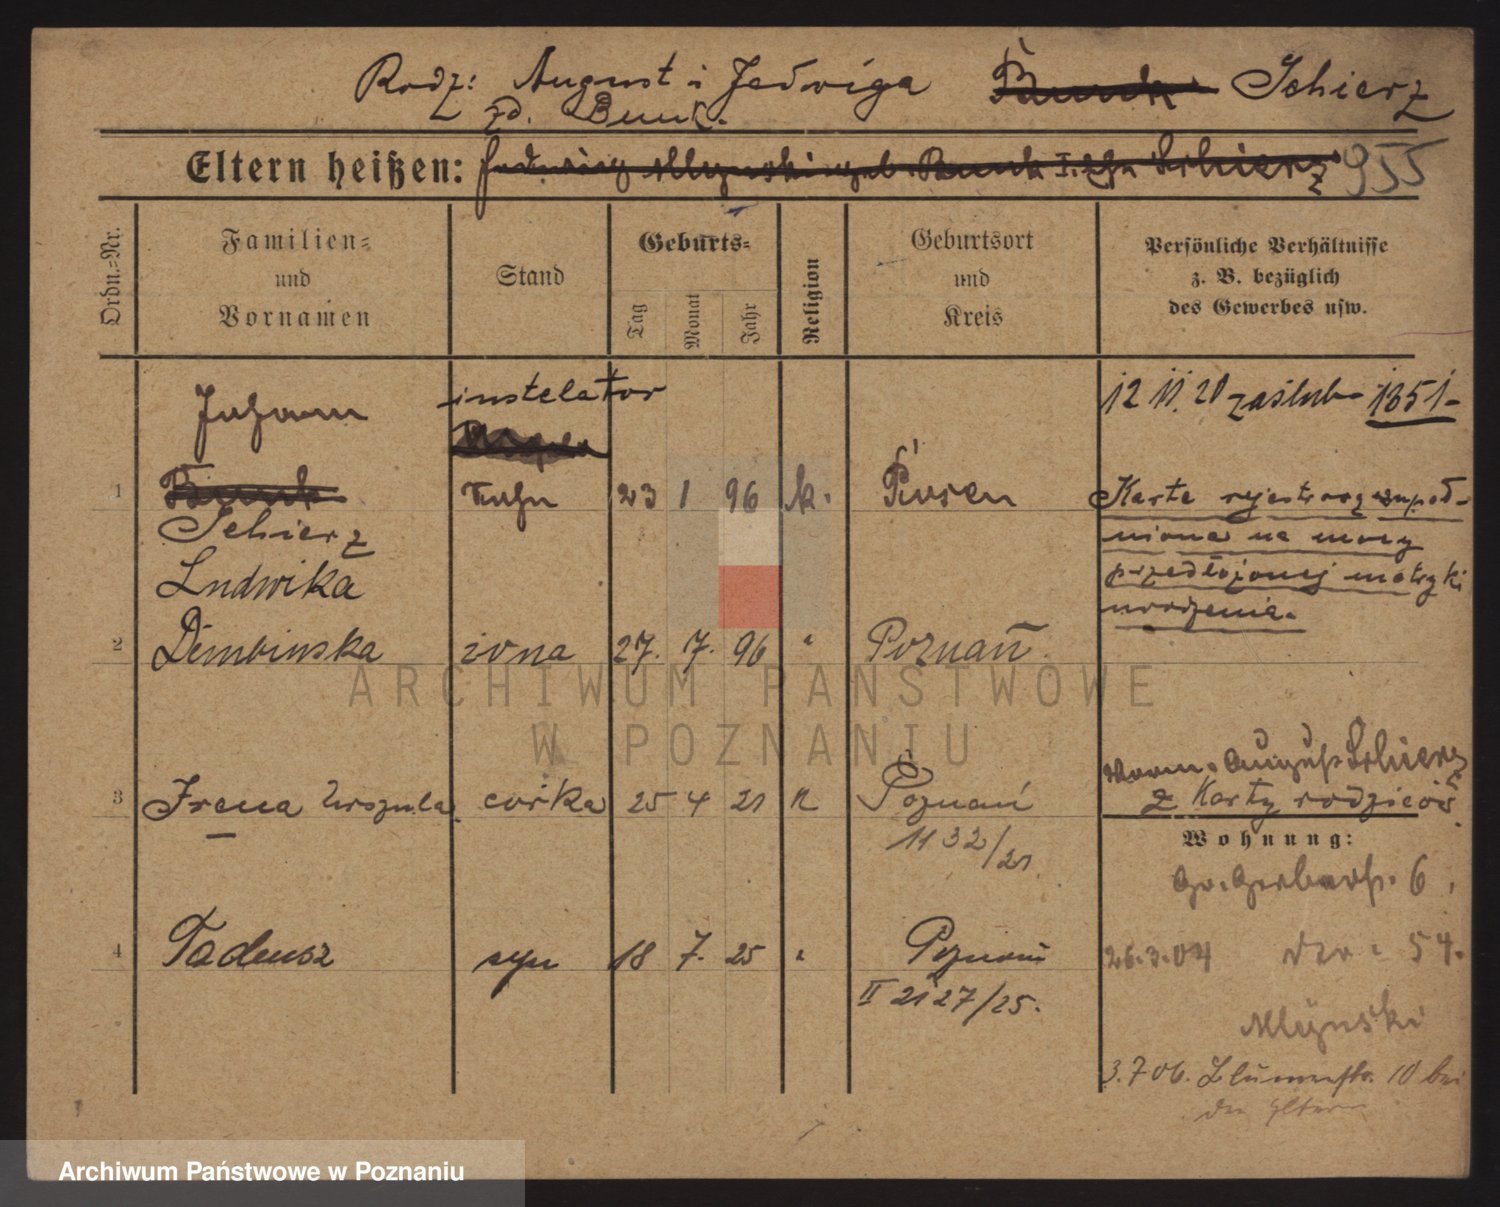 Rodz: August i Jadwiga Bunk Schierz
zd. Bunk.
Eltern heißen: Jadwig Mlynski geb. Bunk I. Schierz 955
Ordn.=Nr.
Familien=
und
Vornamen
Stand
Geburts=
Tag
Monat
Jahr
Religion
Geburtsort
und
Kreis
Persönliche Verhältnisse
z. B. bezüglich
des Gewerbes usw.
Johann instelator 12 11. 20 zaślub 1351-
1 Bunk Sohn 23 1 96 k. Posen
Karta rejestr
Schierz
niona na mocy
Ludwika
przedłożonej metryki
urodzenia.
2 Dembinska żona 27. 7. 96 " Poznań
Vorm. August Schierz
3 Irena Urszula córka 25 4 21 k Poznań
z Karty rodziców
1132/21
Wohnung:
Gr. Gerberstr. 6
4 Tadeusz syn 18 7. 25 " Poznań
II 2127/25.
26.3.04 54.
Mlynski
3.7 06. Blumenstr. 10 bei
den Eltern
ARCHIWUM PAŃSTWOWE
W POZNANIU
Archiwum Państwowe w Poznaniu